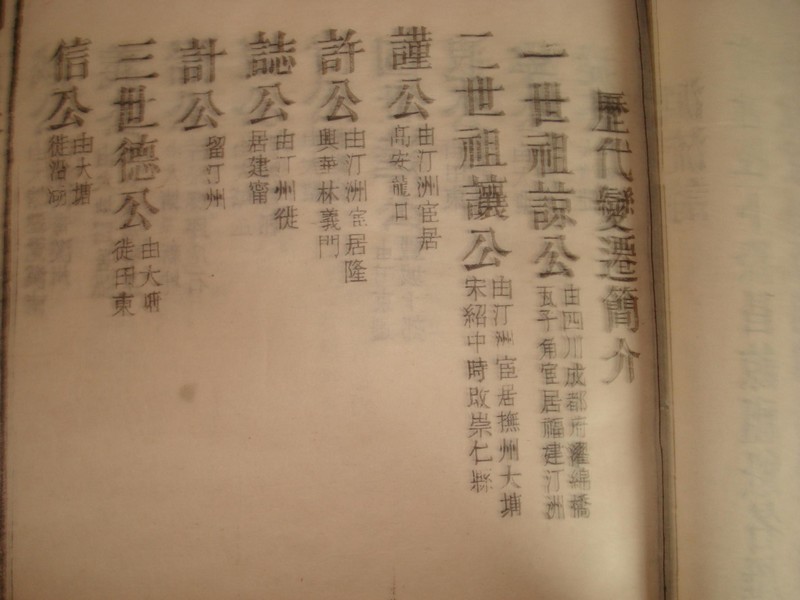 歷代變遷簡介
一世祖諒公
由四川成都府灌綿橋
瓦子角宦居福建汀洲
二世祖讓公
由汀洲宦居撫州大塘
宋紹中時改崇仁縣
謹公
由汀洲宦居
高安龍口
許公
由汀洲宦居隆
興奉林義門
誌公
由汀州徙
居建甯
計公
留汀州
三世德公
由大塘
徙田東
信公
由大塘
徙沿